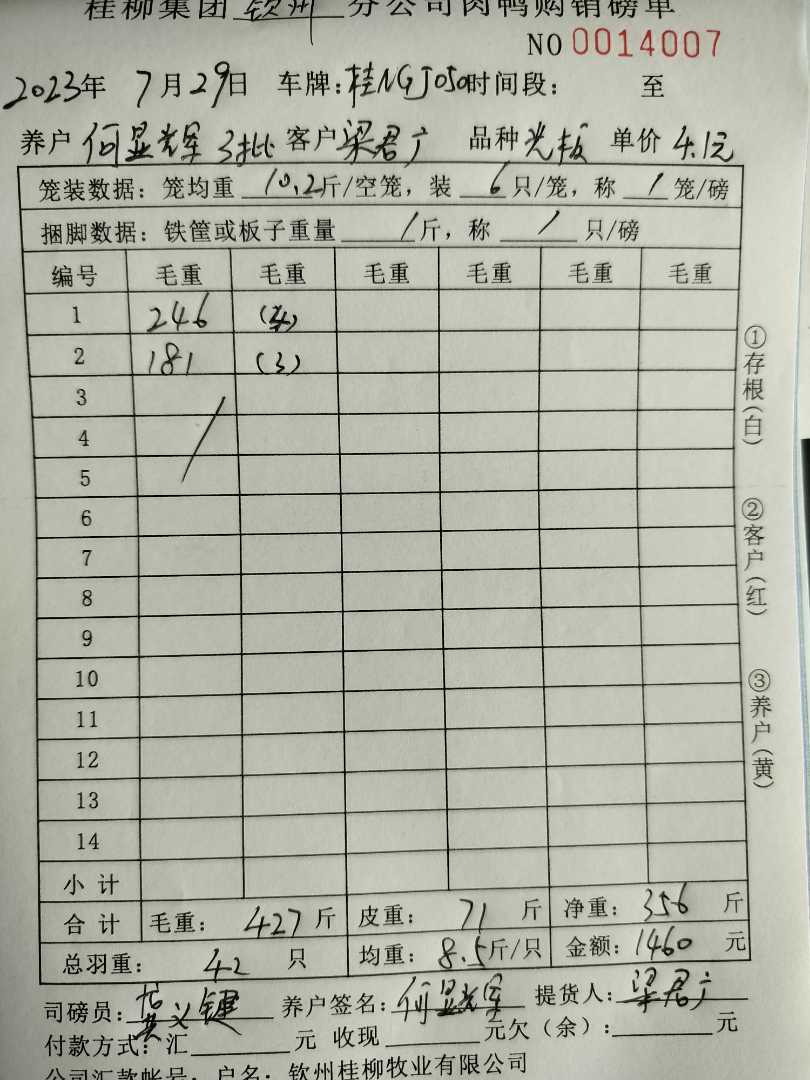 桂柳集团 钦州 分公司肉鸭购销磅单
NO 0014007
2023年 7月29日 车牌:桂NGJ050时间段: 至
养户 何显辉 3批 客户 梁君广 品种 光板 单价 4.1元
笼装数据:笼均重 10.2斤/空笼,装 6 只/笼,称 1 笼/磅
捆脚数据:铁筐或板子重量 / 斤,称 / 只/磅
编号 毛重 毛重 毛重 毛重 毛重 毛重
1 246 (4)
2 181 (3)
3
4
5
6
7
8
9
10
11
12
13
14
小计
合计 毛重: 427 斤 皮重: 71 斤 净重: 356 斤
总羽重: 42 只 均重: 8.5斤/只 金额: 1460 元
①存根(白)
②客户(红)
③养户(黄)
司磅员: 义键 养户签名: 何显辉 提货人: 梁君广
付款方式:汇 元 收现 元欠(余): 元
公司汇款帐号:户名:钦州桂柳牧业有限公司